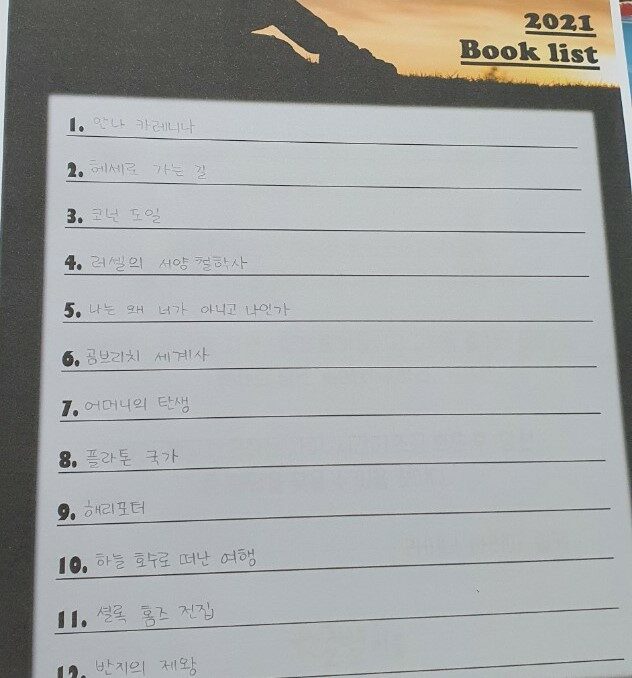 2021
Book list
1. 안나 카레니나
2. 헤세로 가는 길
3. 코난 도일
4. 러셀의 서양 철학사
5. 나는 왜 너가 아니고 나인가
6. 곰브리치 세계사
7. 어머니의 탄생
8. 플라톤 국가
9. 해리포터
10. 하늘 호수로 떠난 여행
11. 셜록 홈즈 전집
12. 반지의 제왕